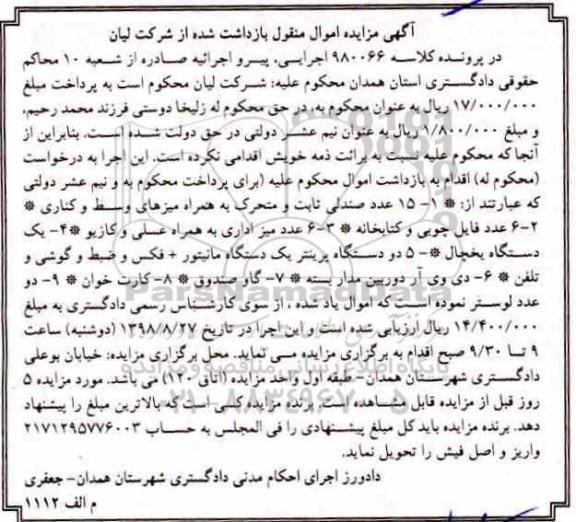 آگهی مزایده اموال منقول بازداشت شده از شرکت لیان
در پرونده کلاسه ۹۸۰۰۶۶ اجرایی، پیرو اجرائیه صادره از شعبه ۱۰ محاکم
حقوقی دادگستری استان همدان محکوم علیه: شرکت لیان محکوم است به پرداخت مبلغ
۱۷/۰۰۰/۰۰۰ ریال به عنوان محکوم به، در حق محکوم له زلیخا دوستی فرزند محمد رحیم،
و مبلغ ۱/۸۰۰/۰۰۰ ریال به عنوان نیم عشر دولتی در حق دولت شده است. بنابراین از
آنجا که محکوم علیه نسبت به برائت ذمه خویش اقدامی نکرده است. این اجرا به درخواست
(محکوم له) اقدام به بازداشت اموال محکوم علیه (برای پرداخت محکوم به و نیم عشر دولتی
که عبارتند از: * ۱- ۱۵ عدد صندلی ثابت و متحرک به همراه میزهای وسط و کناری *
۲-۶ عدد فایل چوبی و کتابخانه * ۳-۶ عدد میز اداری به همراه عسلی و کازیو *۴- یک
دستگاه یخچال *- ۵ دو دستگاه پرینتر یک دستگاه مانیتور + فکس و ضبط و گوشی و
تلفن * ۶- دی وی آر دوربین مدار بسته * ۷- گاو صندوق * ۸- کارت خوان * ۹- دو
عدد لوستر نموده است که اموال یاد شده ، از سوی کارشناس رسمی دادگستری به مبلغ
۱۴/۴۰۰/۰۰۰ ریال ارزیابی شده است و این اجرا در تاریخ ۱۳۹۸/۸/۲۷ (دوشنبه) ساعت
۹ تا ۹/۳۰ صبح اقدام به برگزاری مزایده می نماید. محل برگزاری مزایده: خیابان بوعلی
دادگستری شهرستان همدان-طبقه اول واحد مزایده (اتاق ۱۲۰) می باشد. مورد مزایده ۵
روز قبل از مزایده قابل مشاهده است. برنده مزایده کسی است که بالاترین مبلغ را پیشنهاد
دهد. برنده مزایده باید کل مبلغ پیشنهادی را فی المجلس به حساب ۲۱۷۱۲۹۵۷۷۶۰۰۳
واریز و اصل فیش را تحویل نماید.
دادورز اجرای احکام مدنی دادگستری شهرستان همدان- جعفری
م الف ۱۱۱۲
ParsNamadData
پایگاه اطلاع رسانی مناقصه و مزایده
۰۲۱-۸۸۳۴۹۶۷۰-۵